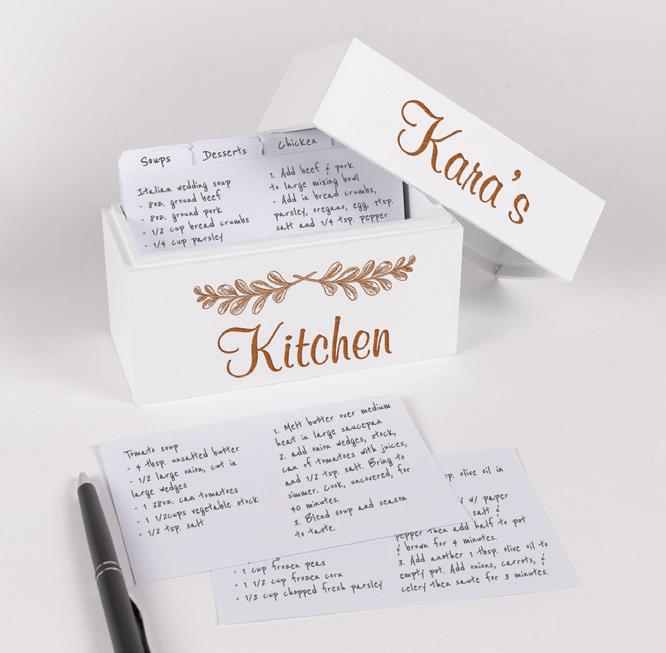 Kara's
Soups
Desserts
Chicken
Italian wedding soup
- 8oz. ground beef
- 8oz. ground pork
- 1/2 cup bread crumbs
- 1/4 cup parsley
1. Add beef & pork
to large mixing bowl
- Add in bread crumbs,
parsley, oregano, egg, 1tsp.
salt and 1/4 tsp. pepper
Kitchen
Tomato soup
- 4 tbsp. unsalted butter
- 1/2 large onion, cut in
large wedges
- 1 28oz. can tomatoes
- 1 1/2cups vegetable stock
- 1/2 tsp. salt
1. Melt butter over medium
heat in large saucepan
2. add onion wedges, stock,
can of tomatoes with juices,
and 1/2 tsp. salt. Bring to
simmer. Cook, uncovered, for
40 minutes.
3. Blend soup and season
to taste.
- 1 cup frozen peas
- 1 1/2 cup frozen corn
- 1/3 cup chopped fresh parsley
olive oil in
w/ paper
salt &
pepper then add half to pot
& brown for 4 minutes.
3. Add another 1 tbsp. olive oil to
empty pot. Add onions, carrots, &
celery then saute for 3 minutes.